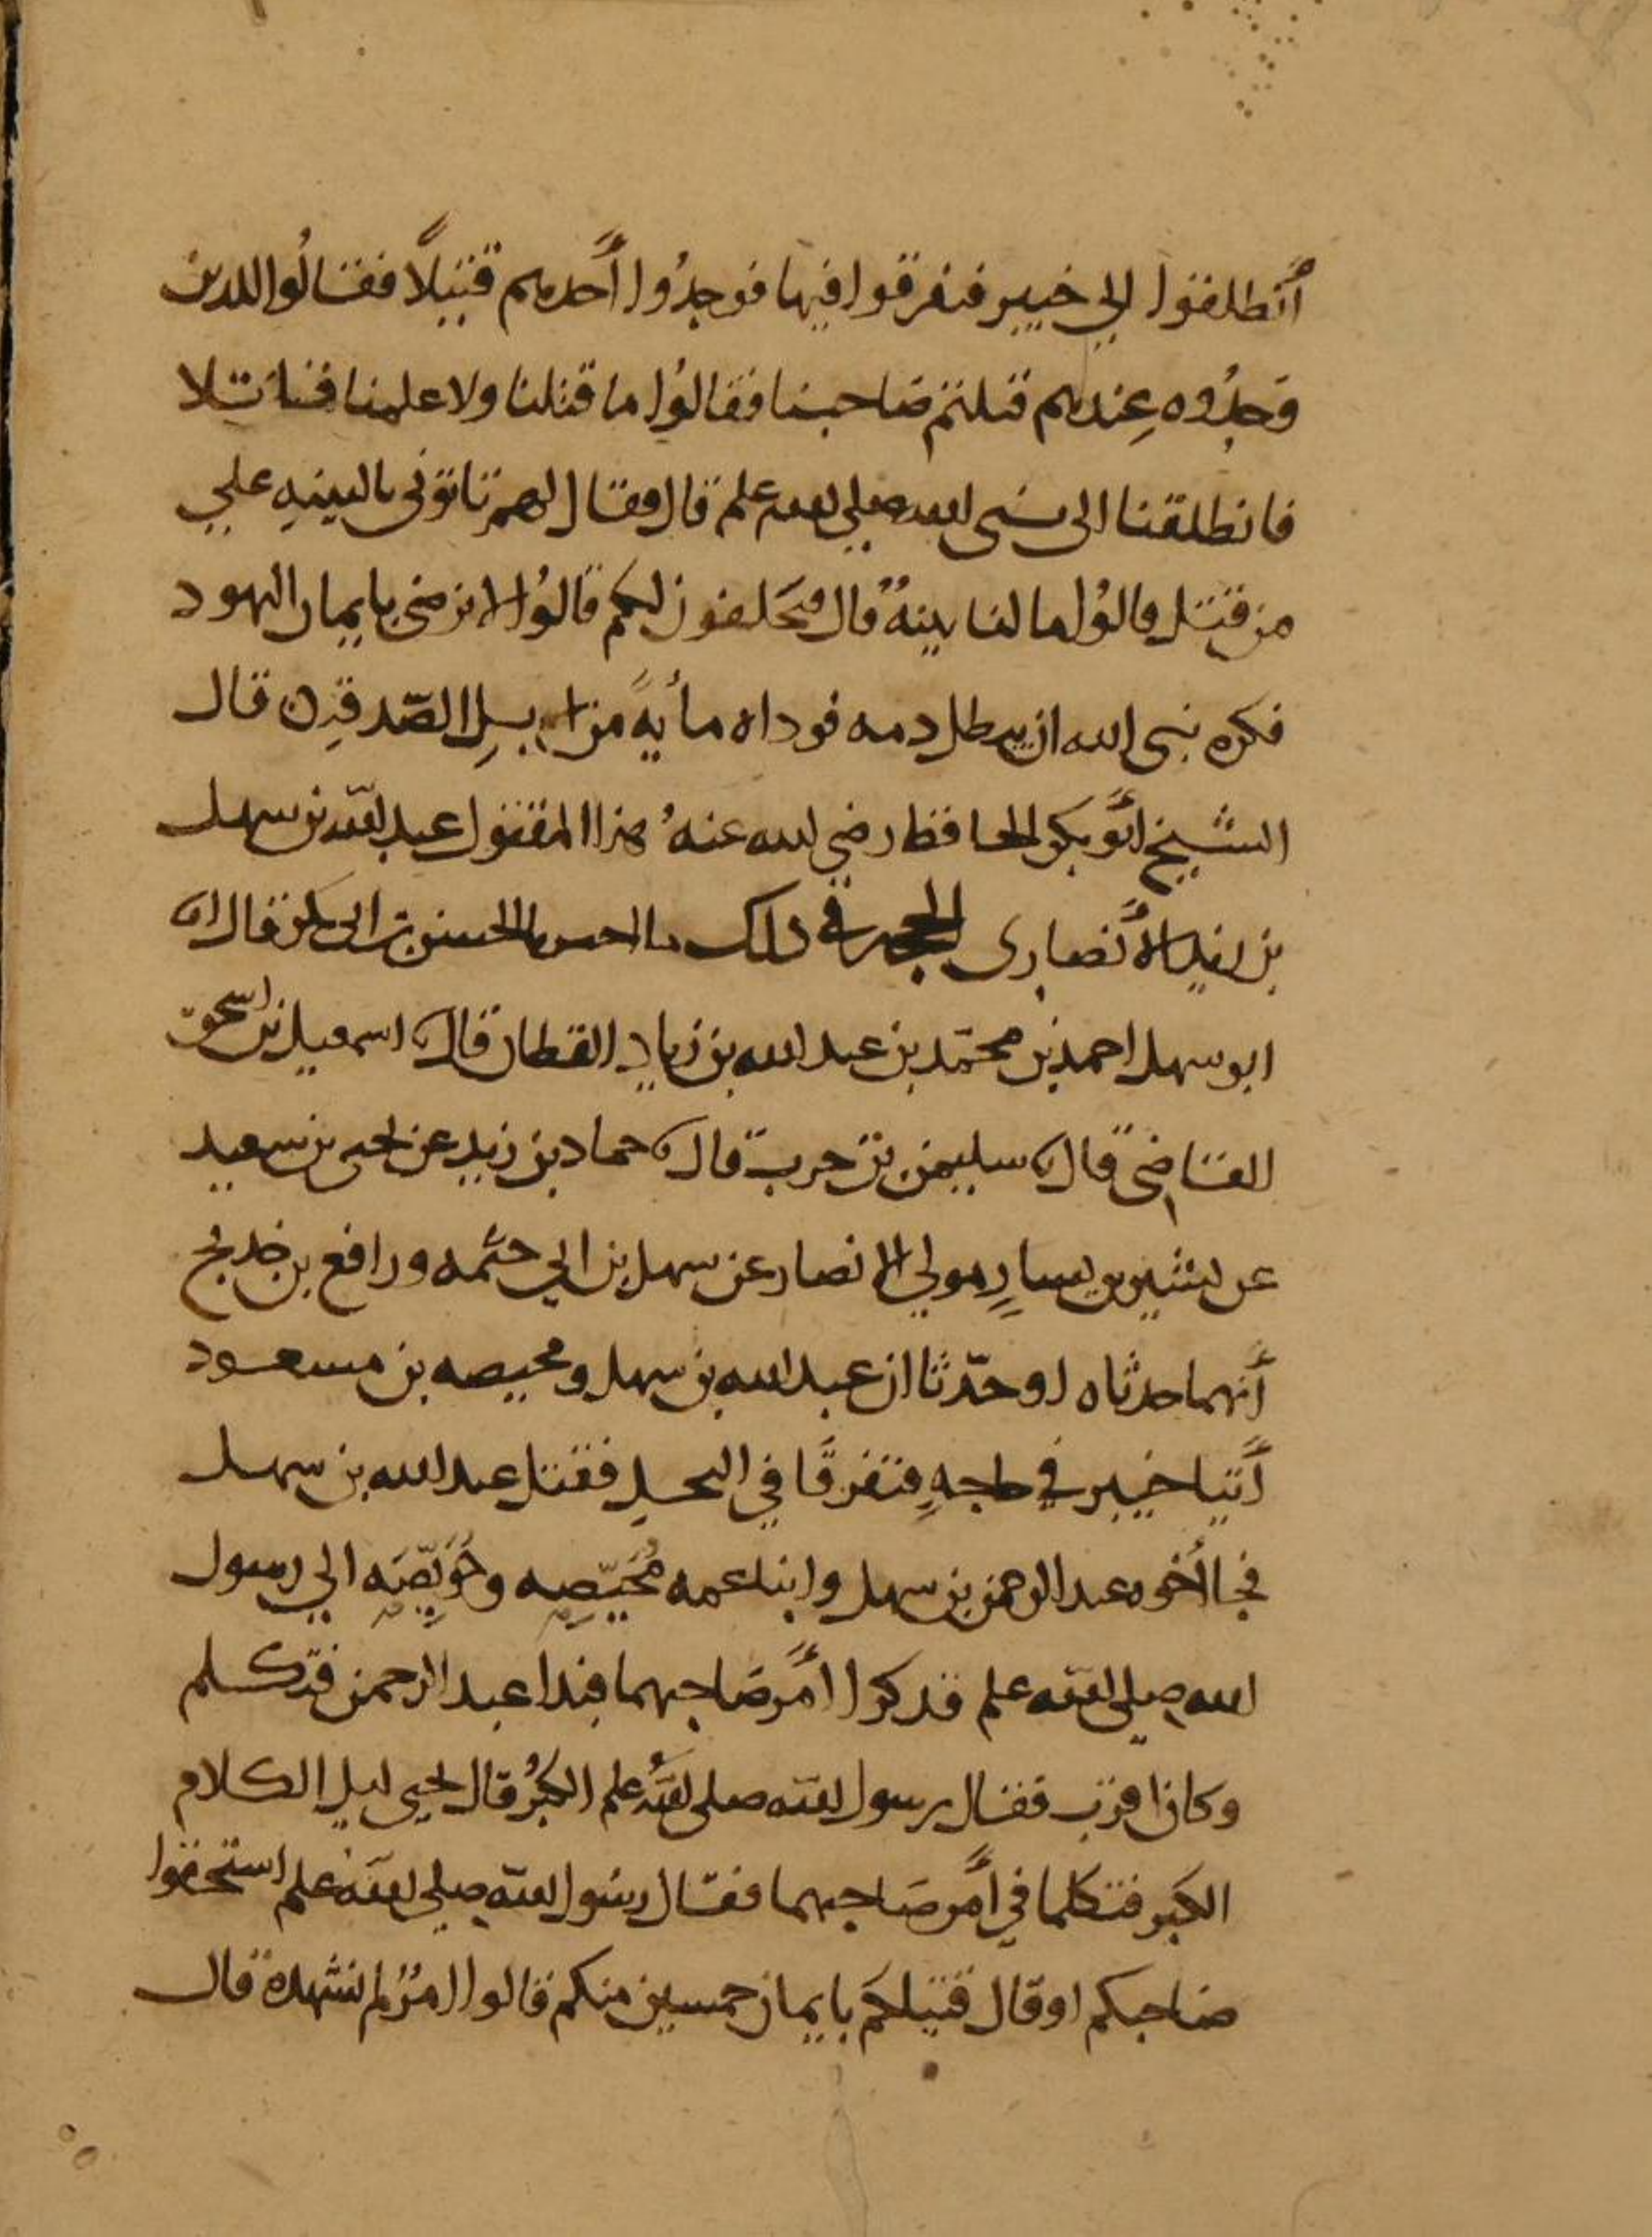 أنطلقوا الي خيبر فتفرقوا فيها فوجدُوا أحدهم قتيلًا فقالُوا للدين
وَجدُوه عِندهم قتلتم صَاحبنا فقالوُا ما قتلنا ولا علمنا قاتلا
فانطلقنا الى نبى الله صلي الله علم قال فقال لهم تاتونى بالبينهِ علي
من قتل قالوُا ما لنا بينهٌ قال فيَحلفون لكم قالوُا لا نرضى بايمان اليهود
فكره نبى الله ان يبطل دمه فوداه مأيهً من ابِلِ الصّدقهِ قال
الشيخ أبَو بكر الحافظ رضي الله عنهُ هذا المقتول عبد الله بن سهل
بن الأنصارى الحجه في ذلك ما الحسن بن ابى بكر قال انا
ابو سهل احمد بن محمّد بن عبد الله بن زيادٍ القطان قال نا اسمعيل بن اسحق
القاضى قال نا سليمن بن حرب قال نا حماد بن زيد عن يحيى بن سعيد
عن بشير بن يسارٍ مولي الانصار عن سهل بن ابي حثمه ورافع بن خديج
أنهما حدثاه او حدّثا ان عبد الله بن سهل ومحيصه بن مسعود
أتيا خيبر في حاجهٍ فتفرقَا في النخلِ فقتل عبد الله بن سهل
فجا أخوه عبد الرحمن بن سهل وابنا عمه مُحَيّصِه وحُوَيّصِه الي رسول
الله صلي الله علم فدكروا أمرَ صَاحبهما فبدا عبد الرحمن فتكلم
وكان اقرب فقال رسول الله صلى الله علم الكُبرُ قال يحيى ليلِ الكلام
الكبر فتكلما في أمر صَاحبهما فقال رسُول الله صلي الله علم استحقوا
صاحبكم او قال قتيلكم بايمان خمسين منكم قالوا امرٌ لم نشهده قال